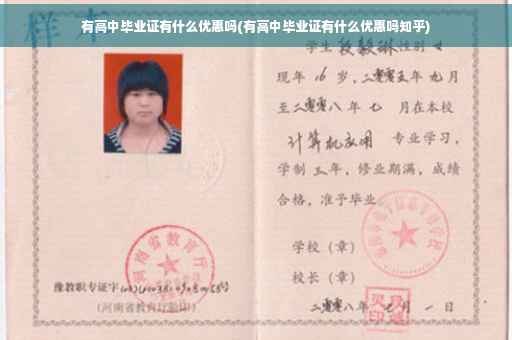 有高中毕业证有什么优惠吗(有高中毕业证有什么优惠吗知乎)
样本
学生段毅琳性别女
现年16岁,二零零五年九月
至二零零八年七月在本校
计算机应用 专业学习,
学制三年,修业期满,成绩
合格,准予毕业
学校(章)
河南省教育厅
校长(章)
豫教职专证字
(河南省教育厅验印)
二零零八年 月一日